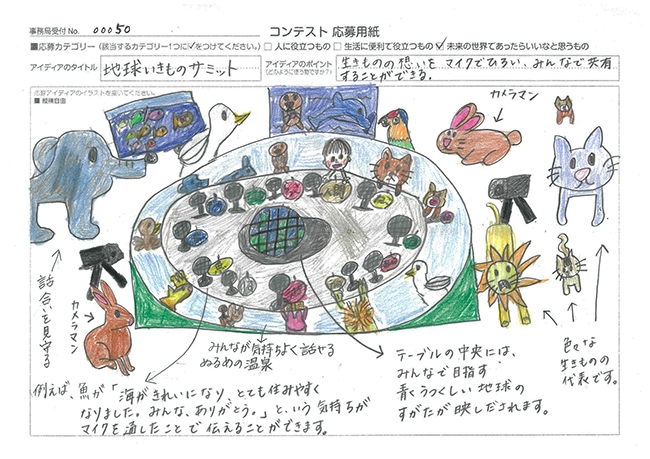 事務局受付No. 00050
コンテスト 応募用紙
■応募カテゴリー (該当するカテゴリー1つに✓をつけてください。) □ 人に役立つもの □ 生活に便利で役立つもの ☑ 未来の世界であったらいいなと思うもの
アイディアのタイトル 地球いきものサミット
アイディアのポイント
(どのように使う物ですか?)
生きものの想いを マイクでひろい、みんなで共有
することができる。
応募アイディアのイラストを描いてください。
■ 縦横自由
カメラマン
話合いを見守る
カメラマン
みんなが気持ちよく話せる
ぬるめの温泉
テーブルの中央には、
みんなで目指す
青くうつくしい地球の
すがたが映しだされます。
色々な
生きものの
代表です。
例えば、魚が「海がきれいになり、とても住みやすく
なりました。みんな、ありがとう。」という気持ちが
マイクを通したことで伝えることができます。